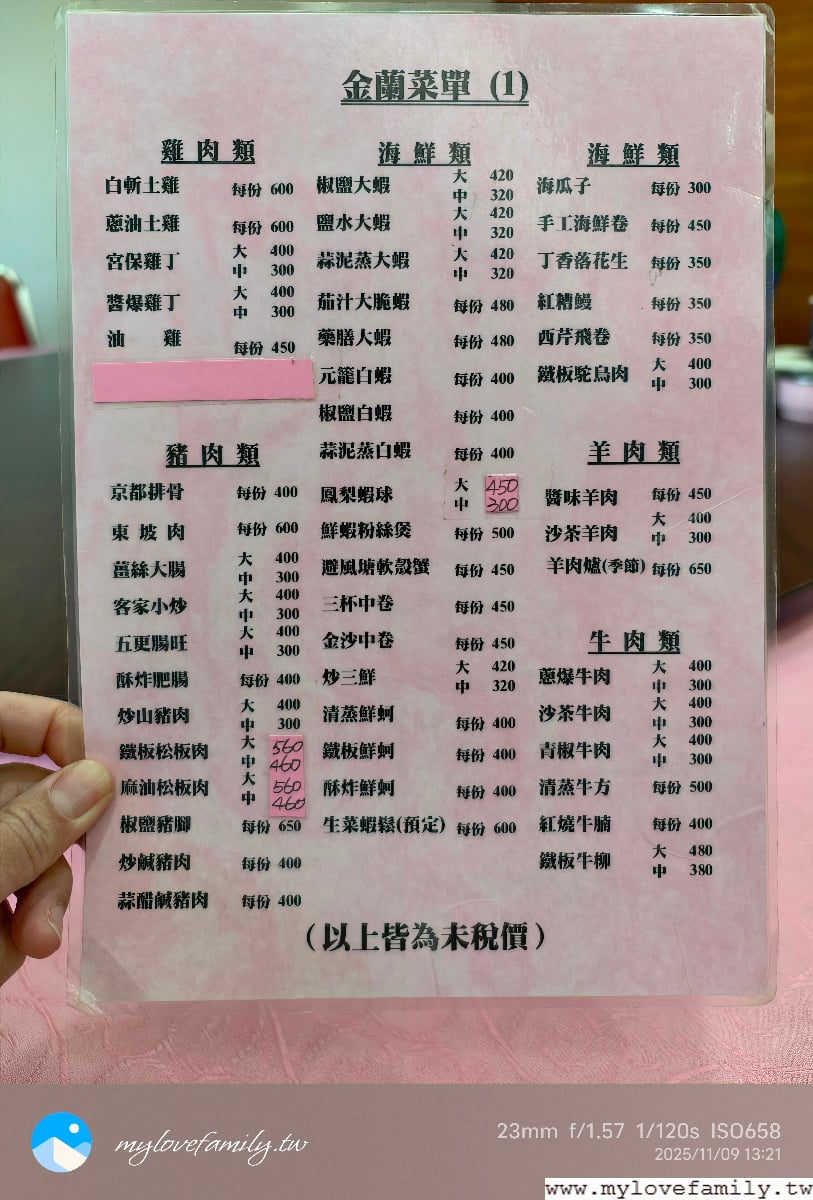 金蘭菜單 (1)
雞肉類
白斬土雞 每份 600
蔥油土雞 每份 600
宮保雞丁 大 400
中 300
醬爆雞丁 大 400
中 300
油雞 每份 450
豬肉類
京都排骨 每份 400
東坡肉 每份 600
薑絲大腸 大 400
中 300
客家小炒 大 400
中 300
五更腸旺 大 400
中 300
酥炸肥腸 每份 400
炒山豬肉 大 400
中 300
鐵板松板肉 大 560
中 460
麻油松板肉 大 560
中 460
椒鹽豬腳 每份 650
炒鹹豬肉 每份 400
蒜醋鹹豬肉 每份 400
海鮮類
椒鹽大蝦 大 420
中 320
鹽水大蝦 大 420
中 320
蒜泥蒸大蝦 大 420
中 320
茄汁大脆蝦 每份 480
藥膳大蝦 每份 480
元籠白蝦 每份 400
椒鹽白蝦 每份 400
蒜泥蒸白蝦 每份 400
鳳梨蝦球 大 450
中 300
鮮蝦粉絲煲 每份 500
避風塘軟殼蟹 每份 450
三杯中卷 每份 450
金沙中卷 每份 450
炒三鮮 大 420
中 320
清蒸鮮蚵 每份 400
鐵板鮮蚵 每份 400
酥炸鮮蚵 每份 400
生菜蝦鬆(預定) 每份 600
海鮮類
海瓜子 每份 300
手工海鮮卷 每份 450
丁香落花生 每份 350
紅糟鰻 每份 350
西芹飛卷 每份 350
鐵板鴕鳥肉 大 400
中 300
羊肉類
醬味羊肉 每份 450
沙茶羊肉 大 400
中 300
羊肉爐(季節) 每份 650
牛肉類
蔥爆牛肉 大 400
中 300
沙茶牛肉 大 400
中 300
青椒牛肉 大 400
中 300
清蒸牛方 每份 500
紅燒牛腩 每份 400
鐵板牛柳 大 480
中 380
(以上皆為未稅價)
mylovefamily.tw
23mm f/1.57 1/120s ISO658
2025/11/09 13:21
www.mylovefamily.tw